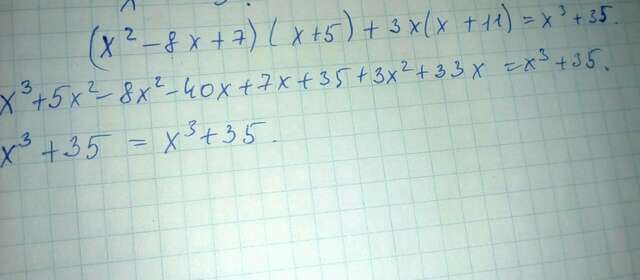 (x² - 8x + 7)(x + 5) + 3x(x + 11) = x³ + 35.
x³ + 5x² - 8x² - 40x + 7x + 35 + 3x² + 33x = x³ + 35.
x³ + 35 = x³ + 35.